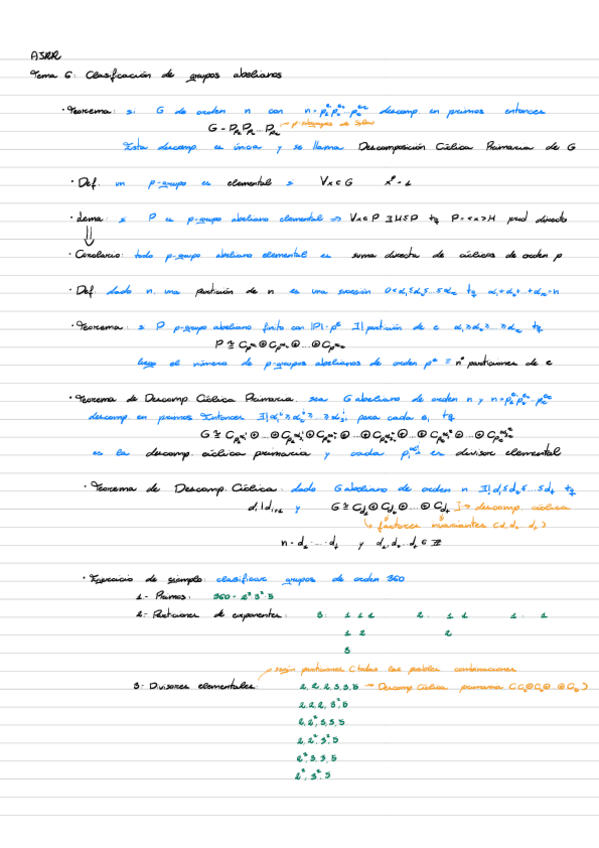 AJRR
Tema 6: Clasificación de grupos abelianos
· Teorema: si G de orden n con n = p₁^e₁ p₂^e₂ … descomp. en primos entonces
G = P_p₁ P_p₂ … → p-subgrupos de Sylow
Esta descomp. es única y se llama Descomposición Cíclica Primaria de G
· Def. un p-grupo es elemental si ∀x ∈ G xᵖ = 1
· Lema: si P es p-grupo abeliano elemental ⇒ ∀x ∈ P ∃H ≤ P tq P = <x> × H prod directo
⇓
· Corolario: todo p-grupo abeliano elemental es suma directa de cíclicos de orden p
· Def: dado n, una partición de n es una sucesión 0 < α₁ ≤ α₂ ≤ … tq α₁ + α₂ + … = n
· Teorema: si P p-grupo abeliano finito con |P| = pᵉ ∃! partición de e α₁ ≥ α₂ ≥ … tq
P ≅ C ⊕ C ⊕ … ⊕ C
luego el número de p-grupos abelianos de orden pᵉ = nº particiones de e
· Teorema de Descomp Cíclica Primaria: sea G abeliano de orden n y n =
descomp en primos. Entonces para cada eᵢ tq
G ≅
es la descomp. cíclica primaria y cada es divisor elemental
· Teorema de Descomp. Cíclica: dado G abeliano de orden n ∃! d₁ ≤ d₂ ≤ … ≤ d_t tq
dᵢ | dᵢ₊₁ y G ≅ C_d₁ ⊕ C_d₂ ⊕ … ⊕ C_dt ] → descomp. cíclica
↳ factores invariantes (d₁, d₂, … d_t)
n = d₁ · … · d_t y d₁, d₂, … d_t ∈ ℤ
· Ejercicio de ejemplo: clasificar grupos de orden 360
1.- Primos: 360 = 2³ 3² 5
2.- Particiones de exponentes: 3: 1 1 1 2: 1 1 1: 1
1 2 2
3
según particiones (todas las posibles combinaciones
3.- Divisores elementales: 2, 2, 2, 3, 3, 5 → Descomp Cíclica primaria (C₂ ⊕ C₂ ⊕ … ⊕ C₅)
2, 2, 2, 3², 5
2, 2², 3, 3, 5
2, 2², 3², 5
2³, 3, 3, 5
2³, 3², 5